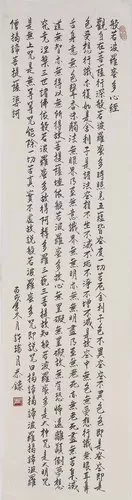 般若波羅蜜多心經
觀自在菩薩行深般若波羅蜜多時照見五蘊皆空度一切苦厄舍利子色不異空空不異色色即是空空即是
色受想行識亦復如是舍利子是諸法空相不生不滅不垢不淨不增不減是故空中無色無受想行識無眼耳鼻舌
身意無色聲香味觸法無眼界乃至無意識界無無明亦無無明盡乃至無老死亦無老死盡無苦集滅
道無智亦無得以無所得故菩提薩埵依般若波羅蜜多故心無罣礙無罣礙故無有恐怖遠離顛倒夢想
究竟涅槃三世諸佛依般若波羅蜜多故得阿耨多羅三藐三菩提故知般若波羅蜜多是大神咒是大明咒
是無上咒是無等等咒能除一切苦真實不虛故說般若波羅蜜多咒即說咒曰揭諦揭諦波羅揭諦波羅
僧揭諦菩提薩婆訶
月 恭錄